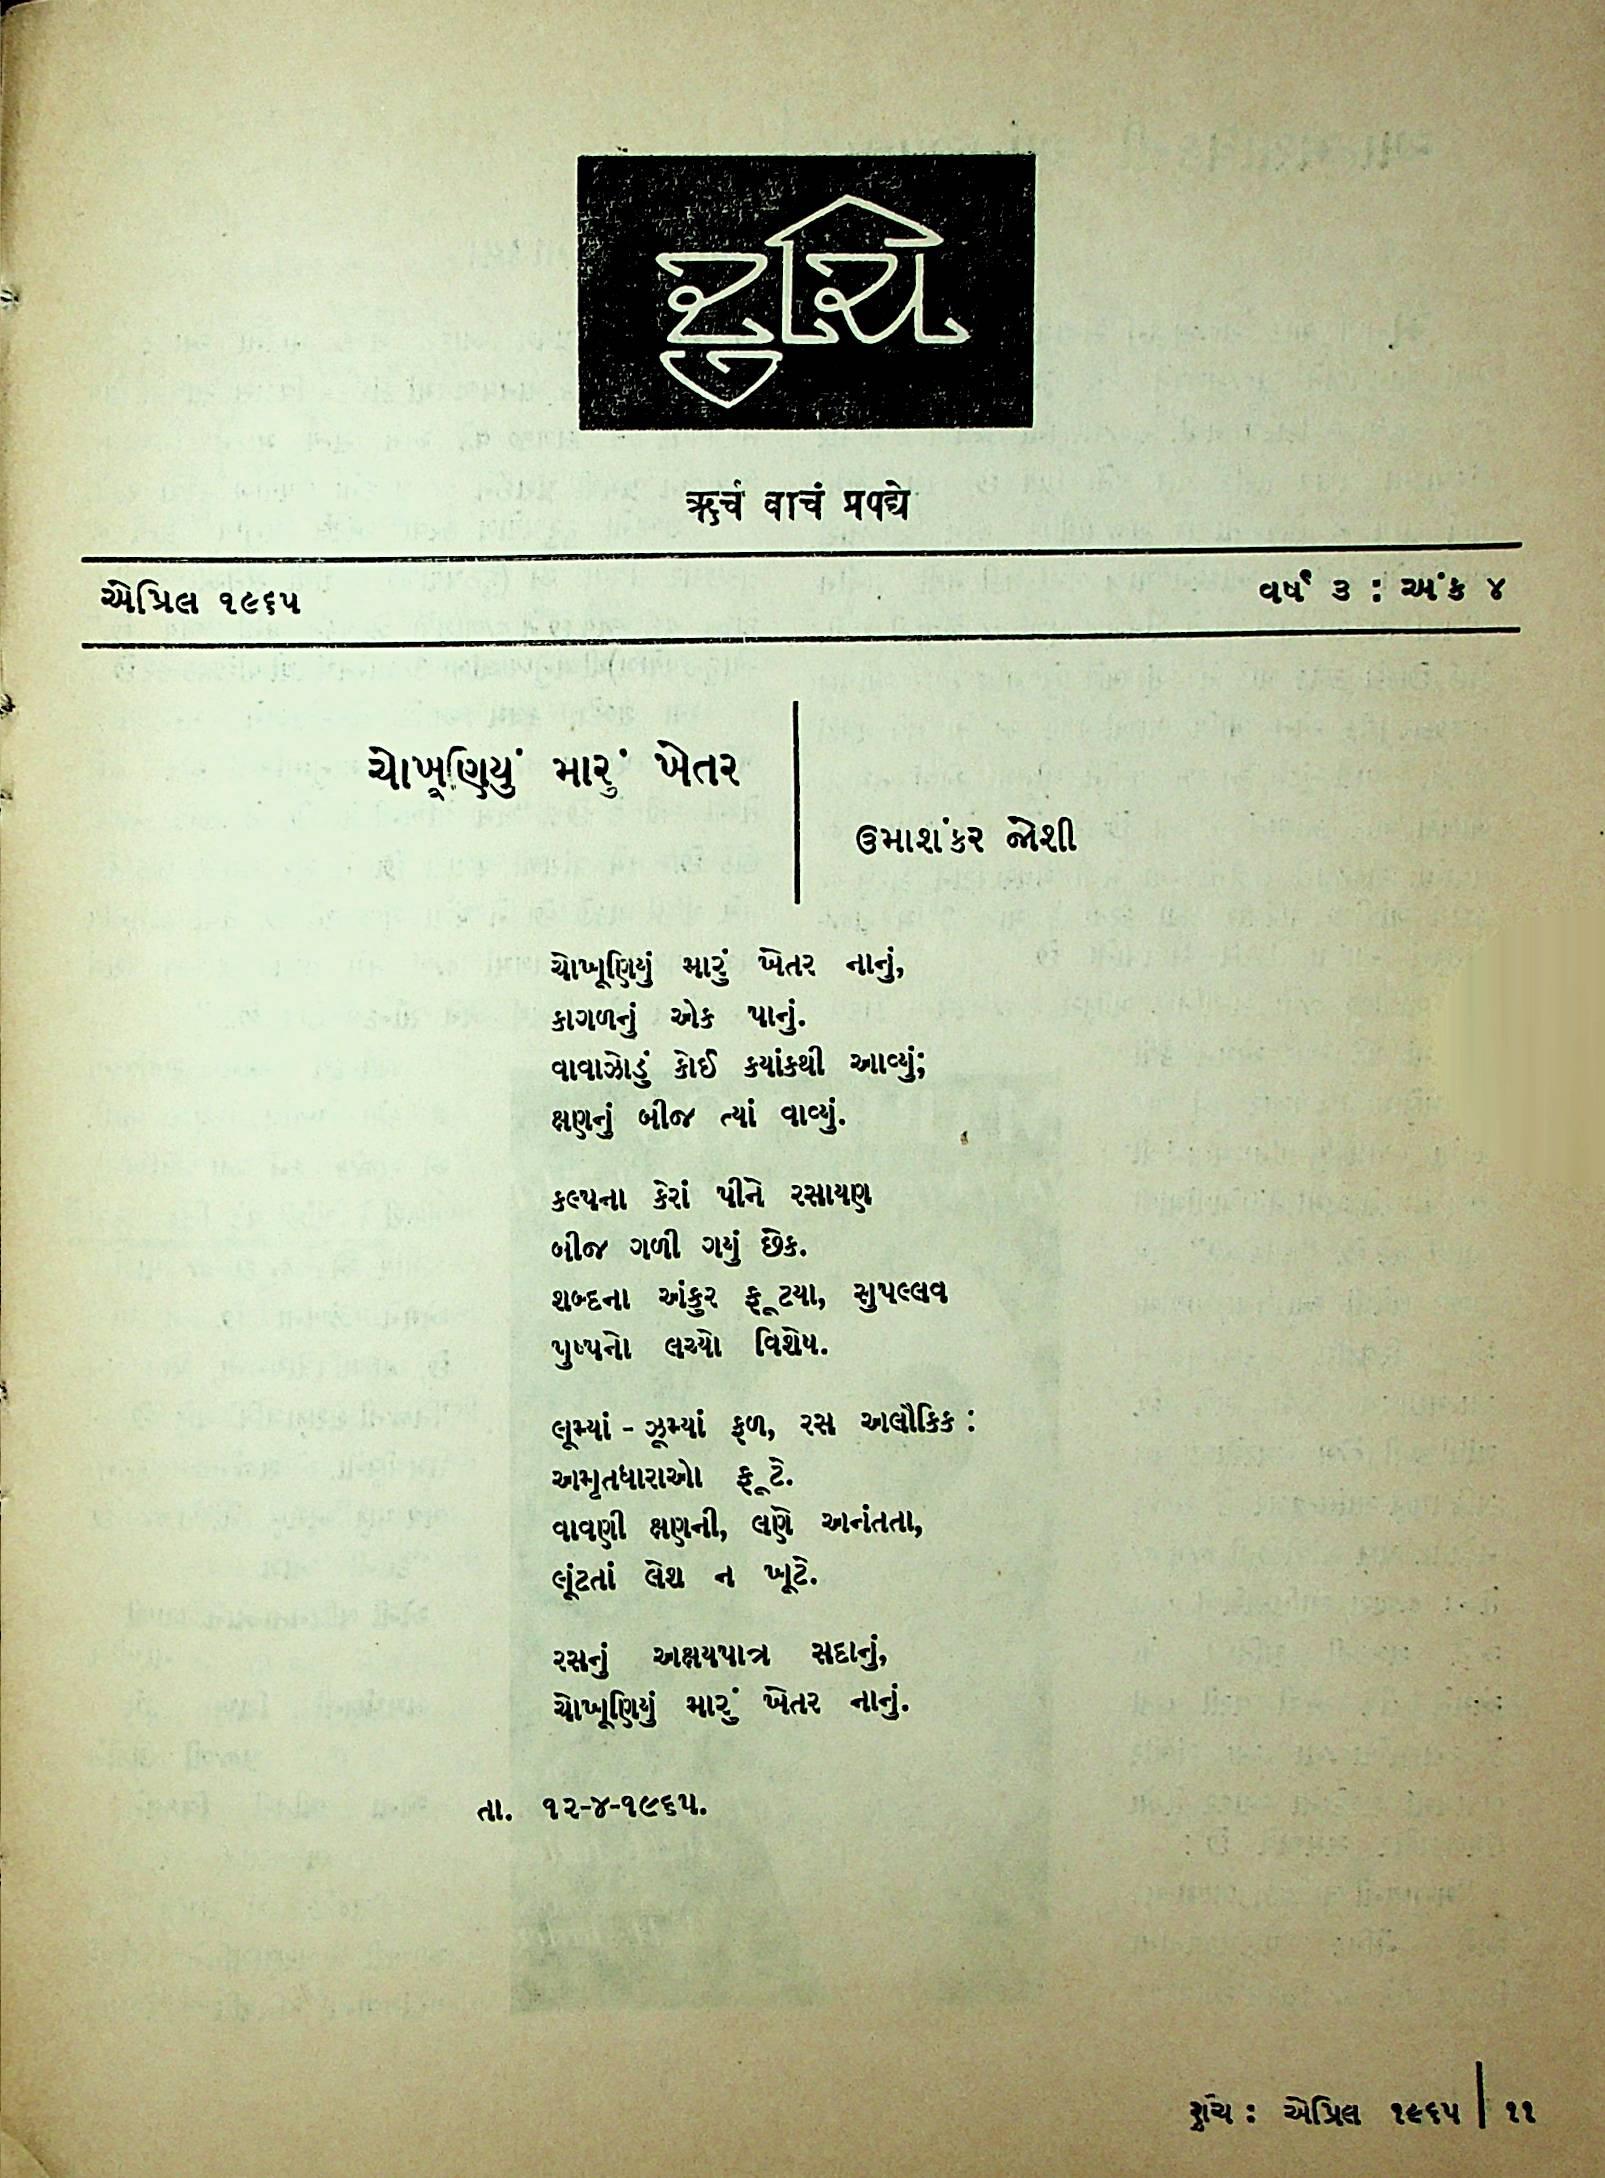 રુચિ
ऋचं वाचं प्रपद्ये
એપ્રિલ ૧૯૬૫
વર્ષ ૩ : અંક ૪
ચોખૂણિયું મારું ખેતર
ઉમાશંકર જોશી
ચોખૂણિયું મારું ખેતર નાનું,
કાગળનું એક પાનું.
વાવાઝોડું કોઈ કયાંકથી આવ્યું;
ક્ષણનું બીજ ત્યાં વાવ્યું.
કલ્પના કેરાં પીને રસાયણ
બીજ ગળી ગયું છેક.
શબ્દના અંકુર ફૂટયા, સુપલ્લવ
પુષ્પનો લચ્યો વિશેષ.
લૂમ્યાં - ઝૂમ્યાં ફળ, રસ અલૌકિક :
અમૃતધારાઓ ફૂટે.
વાવણી ક્ષણની, લણે અનંતતા,
લૂંટતાં લેશ ન ખૂટે.
રસનું અક્ષયપાત્ર સદાનું,
ચોખૂણિયું મારું ખેતર નાનું.
તા. ૧૨-૪-૧૯૬૫.
રુચિ : એપ્રિલ ૧૯૬૫ | ૧૧